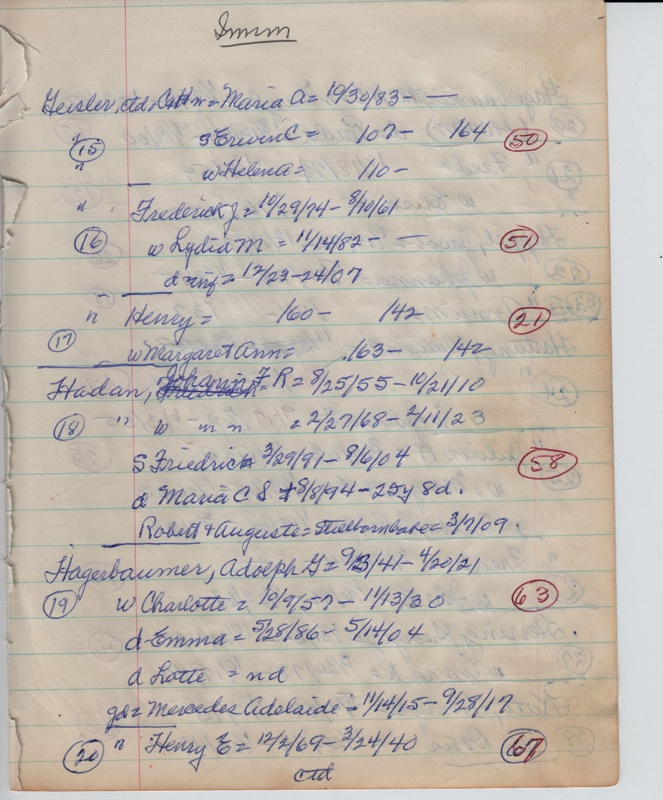 Imm
Geisler, ctd = w = Maria A = 10/30/83 - —
(15) " s Ervin C = 107 - 164 (50)
" w Helena = 110 -
" Frederick J = 10/29/74 - 8/10/61
(16) w Lydia M = 11/14/82 - — (51)
d inf = 12/23-24/07
" Henry = 160 - 142 (21)
(17) w Margaret Ann = 163 - 142
Hadan, Johann F R = 8/25/55 - 10/21/10
(18) " w " " = 2/27/68 - 2/11/23
s Friedrich 3/29/91 - 8/6/04 (58)
d Maria C S 8/8/94 - 25y 8d.
Robert + Auguste = Stillbornbabe = 3/7/09.
Hagerbaumer, Adolph G = 9/23/41 - 4/20/21
(19) w Charlotte = 10/9/57 - 11/13/30 (63)
d - Emma = 5/28/86 - 5/14/04
d Lotte = nd
gd = Mercedes Adelaide - 11/14/15 - 9/28/17
(20) " Henry E = 12/2/69 - 3/24/40 (67)
ctd